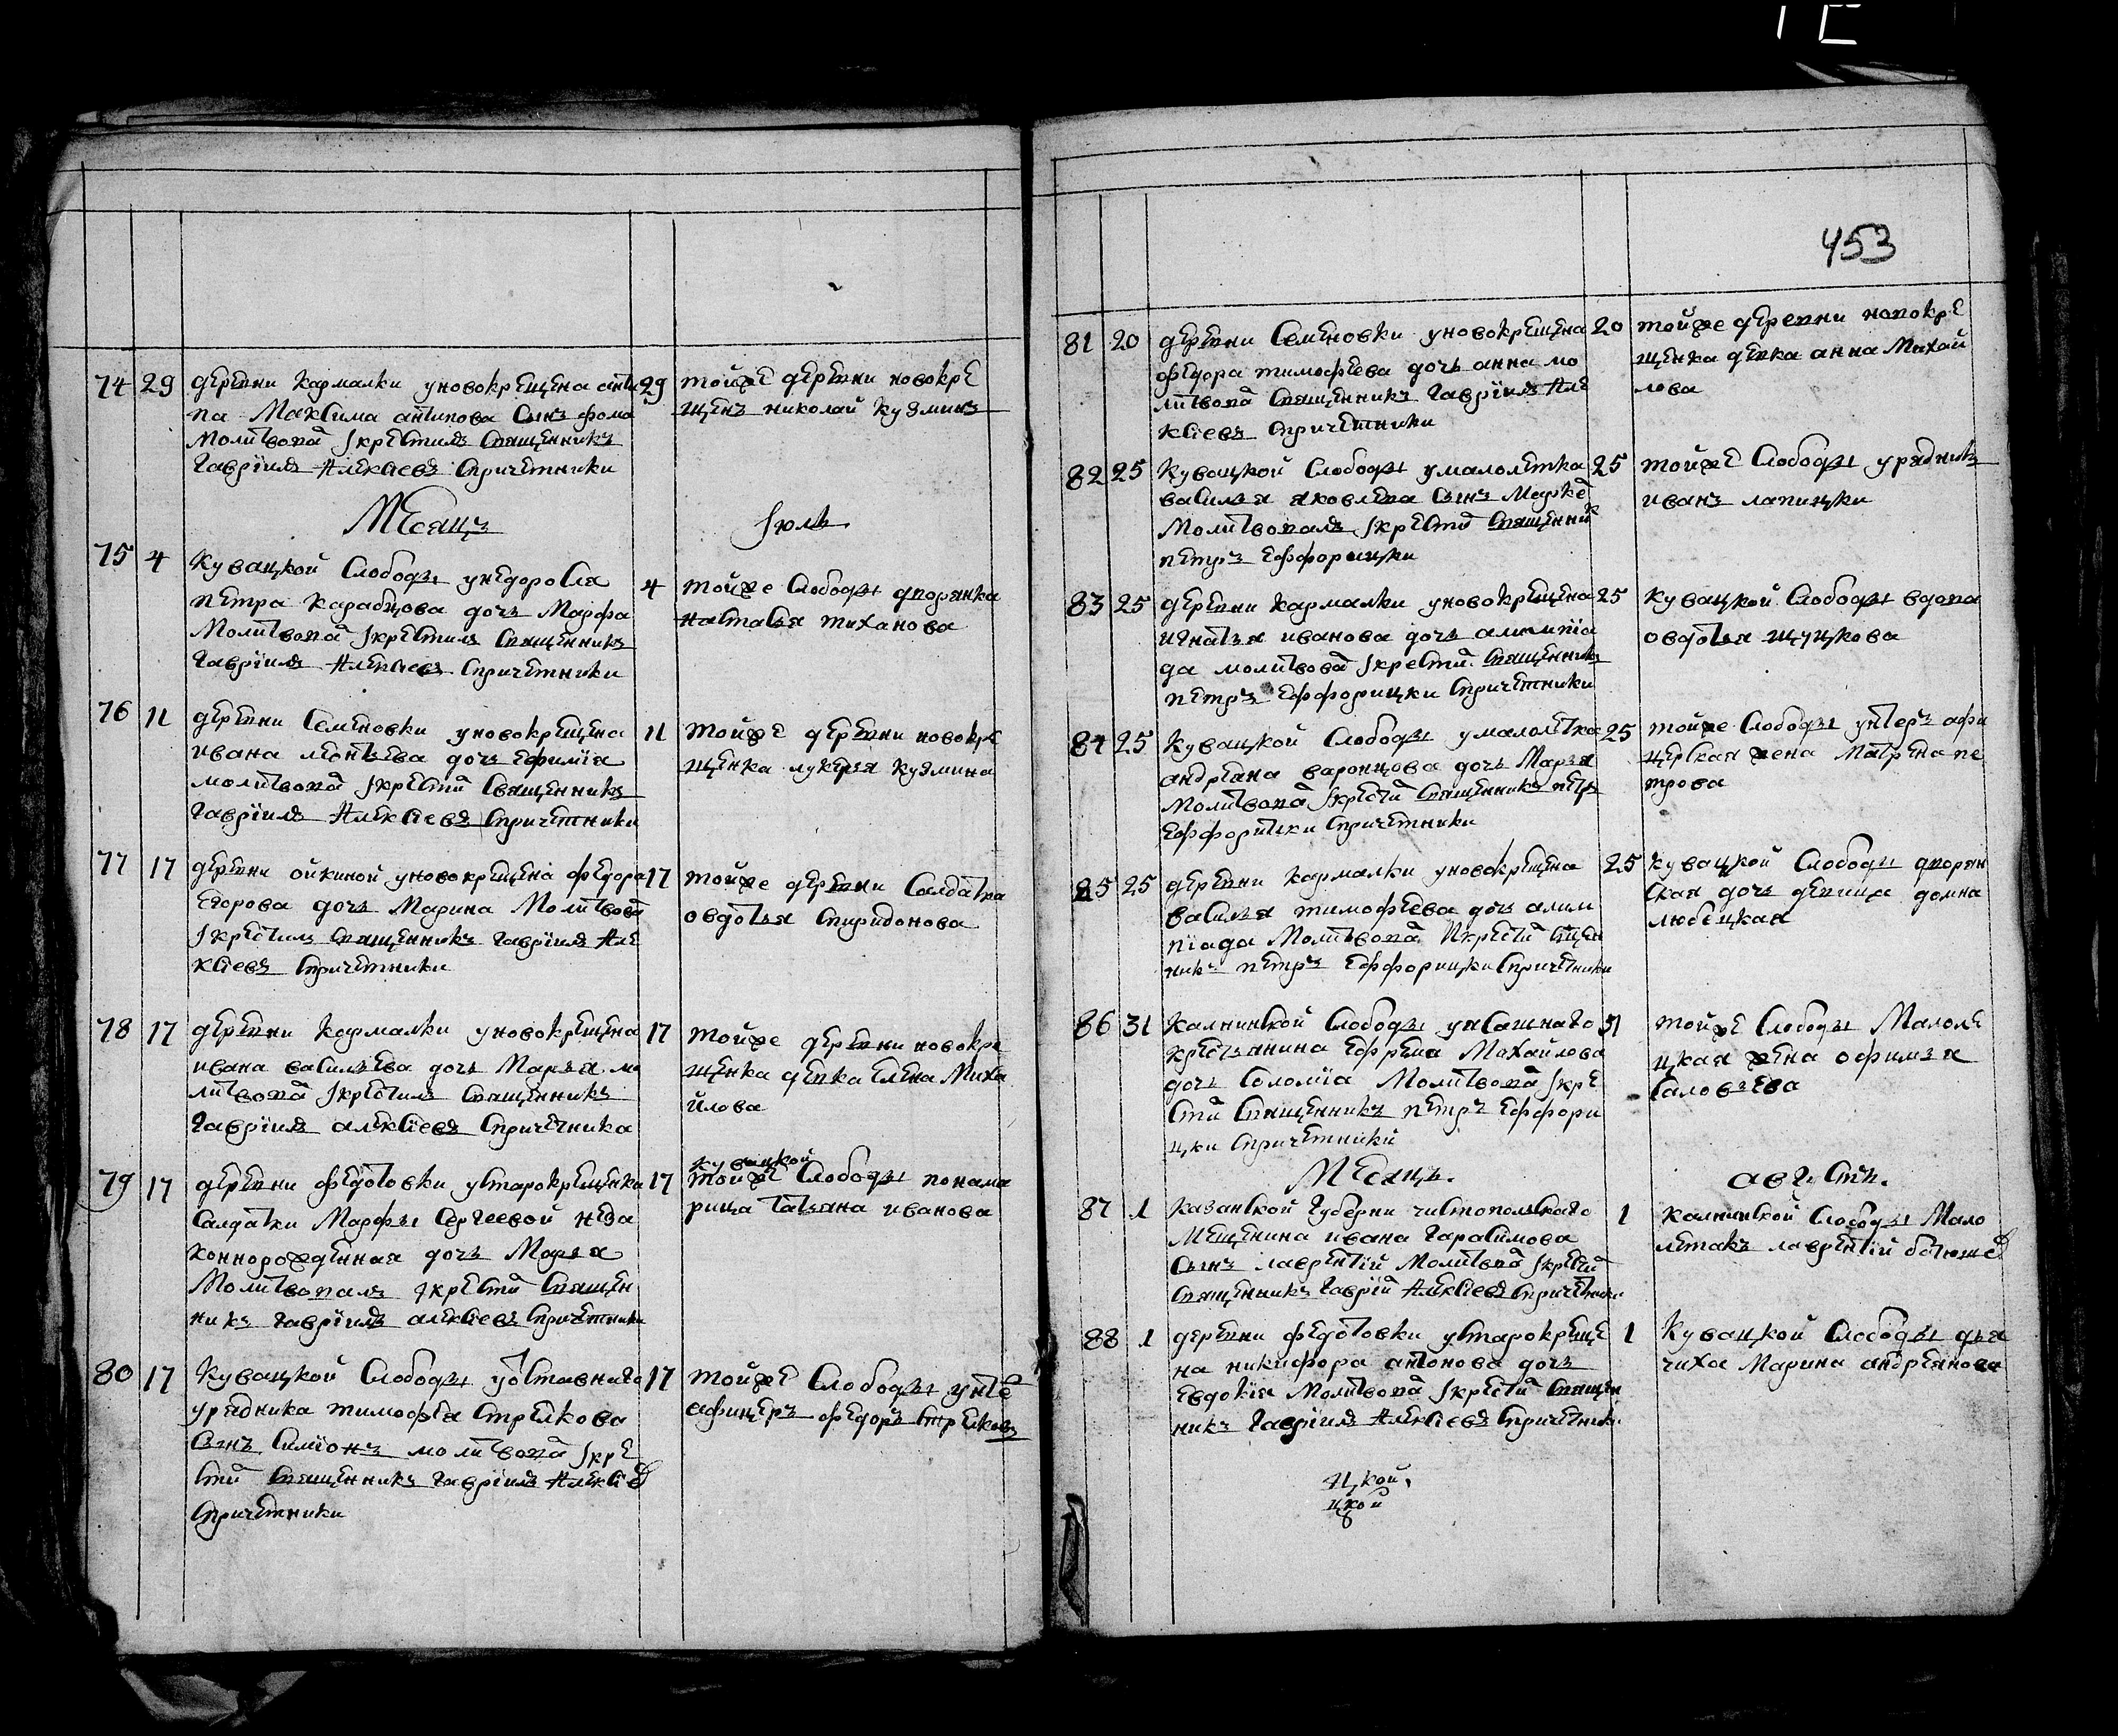 74 29 деревни Кармалки уновокрещена анти
па Максима антипова Сынъ фома
Молитвовалъ Iкрестилъ Священникъ
Гавріилъ Алексіевъ Спричетники
29 тойже деревни новокре
щенъ николай Кузминъ
Месяцъ Iюль
75 4 Кувацкой Слободы унедоросля
петра Карабцова дочь Марфа
Молитвова Iкрестилъ Священникъ
Гавріилъ Алексіевъ Спричетники
4 тойже Слободы дворянка
настасья тиханова
76 11 деревни Семеновки уновокрещена
ивана леонтьева дочь Ефимія
молитвова Iкрести Священникъ
Гавріилъ Алексіевъ Спричетники
11 тойже деревни новокре
щенка лукерья Кузмина
77 17 деревни ойкиной уновокрещена федора
Егорова дочь Марина Молитвова
Iкрестилъ Священникъ Гавріилъ Але
ксіевъ Спричетники
17 тойже деревни Салдатка
овдотья Спиридонова
78 17 деревни Кармалки уновокрещена
ивана васильева дочь Марья мо
литвова Iкрестилъ Священникъ
Гавріилъ алексіевъ Спричетника
17 тойже деревни новокре
щенка девка Елена Миха
йлова
79 17 деревни федотовки устарокрещенка
Салдатки Марфы Сергеевой неза
коннорожденная дочь Марья
Молитвовалъ Iкрести Священ
никъ Гавріилъ алексіевъ Спричетники
17 кувацкой
тойже Слободы понама
рица Татьяна иванова
80 17 Кувацкой Слободы уотставнаго
урядника тимофея Стрелкова
Сынъ Симіонъ молитвова Iкре
сти Священникъ Гавріилъ Алексіев
Спричетники
17 тойже Слободы унте
афицеръ федоръ Стрелковъ
453
81 20 деревни Семеновки уновокрещена
федора тимофеева дочь анна мо
литвова Священникъ Гавріилъ Але
ксіевъ Спричетники
20 тойже деревни новокре
щенка девка анна Михай
лова
82 25 Кувацкой Слободы умалолетка
василья яковлева Сынъ Марке
Молитвовалъ Iкрести Священник
петръ Еффорицки
25 тойже Слободы урядникъ
иванъ лапицки
83 25 деревни Кармалки уновокрещена
игнатья иванова дочь алимпіа
да молитвова Iкрести Священникъ
петръ Еффорицки Спричетники
25 Кувацкой Слободы вдова
овдотья щуцкова
84 25 Кувацкой Слободы умалолетка
андреяна варонцова дочь Марья
Молитвова Iкрести Священникъ петръ
Еффорицки Спричетники
25 тойже Слободы унтеръ афи
церская жена Матрена пе
трова
85 25 деревни Кармалки уновокрещена
василья тимофеева дочь алим
піада Молитвова Iкрести Священ
никъ петръ Еффорицки Спричетники
25 Кувацкой Слободы дворян
ская дочь девица домна
любецкая
86 31 Калнинской Слободы упсашнаго
крестьянина Ефрема Михайлова
дочь Соломіа Молитвова Iкре
сти Священникъ петръ Еффори
цки Спричетники
31 тойже Слободы Малоле
цкая жена офимья
Саловьева
Месяцъ. август.
87 1 Казанской Губерни чистопольскаго
Мещенина ивана Гарасимова
Сынъ лаврентій Молитвова Iкрести
Священникъ Гавріи Алексіевъ Спричетники
1 Калнинской Слободы Мало
летакъ лаврентій
88 1 деревни федотовки устарокреще
на никифора антонова дочь
Евдокія Молитвова Iкрести Священ
никъ Гавріилъ Алексіевъ Спричетники
1 Кувацкой Слободы дья
чиха Марина андреянова
цкой
цкой